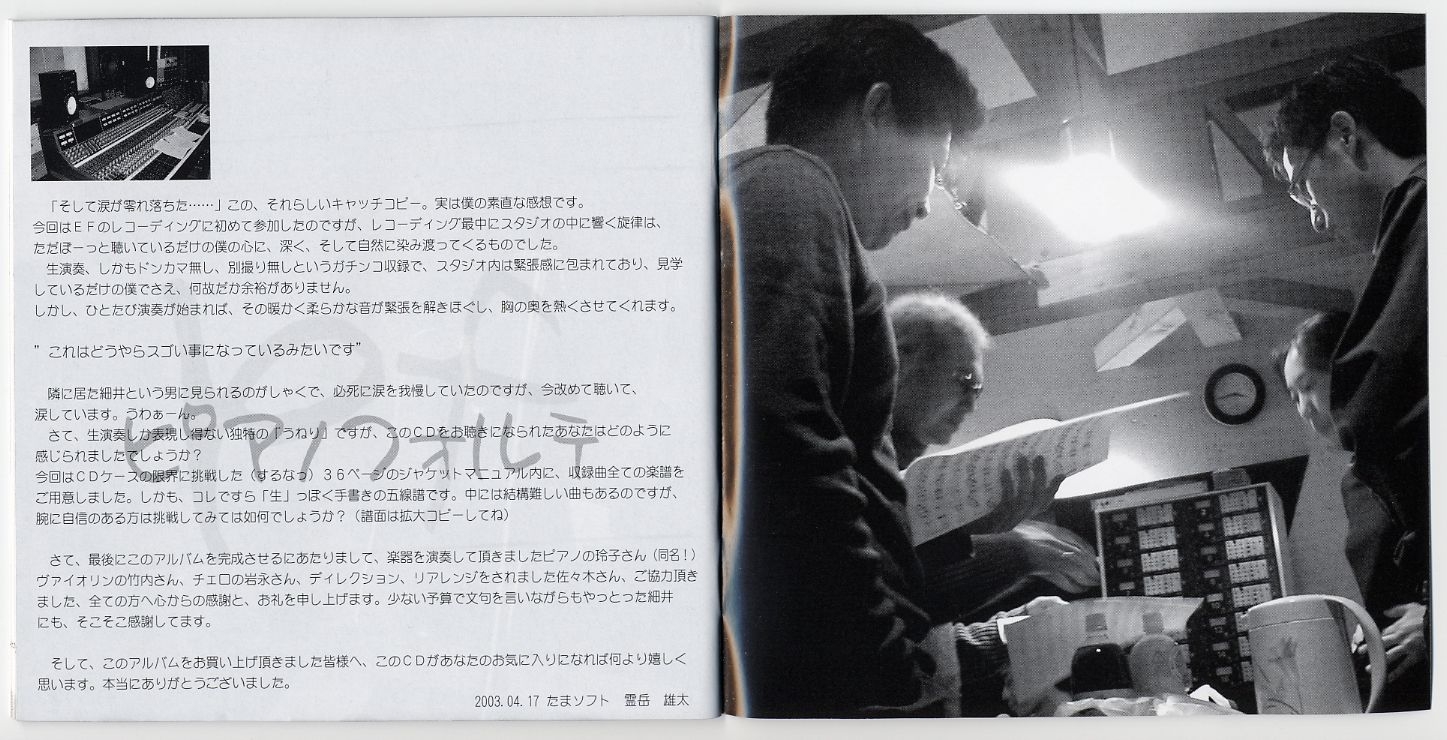 「そして涙が零れ落ちた……」この、それらしいキャッチコピー。実は僕の素直な感想です。
今回はＥＦのレコーディングに初めて参加したのですが、レコーディング最中にスタジオの中に響く旋律は、
ただぼーっと聴いているだけの僕の心に、深く、そして自然に染み渡ってくるものでした。
生演奏、しかもドンカマ無し、別撮り無しというガチンコ収録で、スタジオ内は緊張感に包まれており、見学
しているだけの僕でさえ、何故だか余裕がありません。
しかし、ひとたび演奏が始まれば、その暖かく柔らかな音が緊張を解きほぐし、胸の奥を熱くさせてくれます。
”これはどうやらスゴい事になっているみたいです”
隣に居た細井という男に見られるのがしゃくで、必死に涙を我慢していたのですが、今改めて聴いて、
涙しています。うわぁーん。
さて、生演奏しか表現し得ない独特の「うねり」ですが、このＣＤをお聴きになられたあなたはどのように
感じられましたでしょうか？
今回はＣＤケースの限界に挑戦した（するなっ）３６ページのジャケットマニュアル内に、収録曲全ての楽譜を
ご用意しました。しかも、コレですら「生」っぽく手書きの五線譜です。中には結構難しい曲もあるのですが、
腕に自信のある方は挑戦してみては如何でしょうか？（譜面は拡大コピーしてね）
さて、最後にこのアルバムを完成させるにあたりまして、楽器を演奏して頂きましたピアノの玲子さん（同名！）
ヴァイオリンの竹内さん、チェロの岩永さん、ディレクション、リアレンジをされました佐々木さん、ご協力頂き
ました、全ての方へ心からの感謝と、お礼を申し上げます。少ない予算で文句を言いながらもやっとった細井
にも、そこそこ感謝してます。
そして、このアルバムをお買い上げ頂きました皆様へ、このＣＤがあなたのお気に入りになれば何より嬉しく
思います。本当にありがとうございました。
2003.04.17 たまソフト　霊岳　雄太
ピアノフォルテ